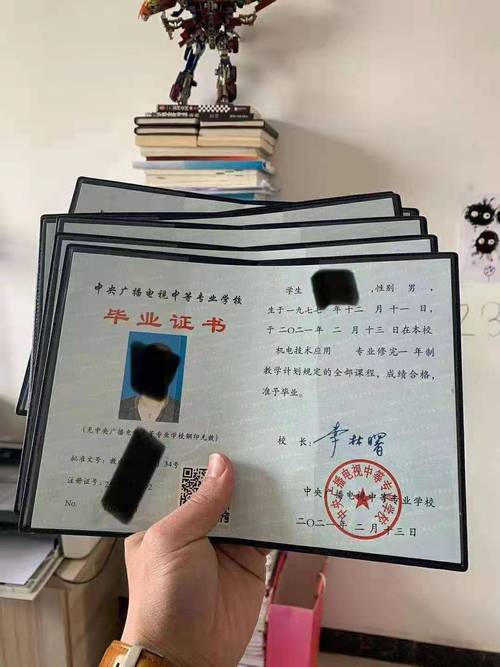 中央广播电视中等专业学校
毕业证书
(无中央广播电视中等专业学校钢印无效)
批准文号: 教 34号
注册证号: 2 2
No:
学生 ,性别 男 ,
生于一九七七年 十二 月 十一 日,
于 二〇二一年 二 月 十三 日在本校
机电技术应用 专业修完 一 年制
教学计划规定的全部课程, 成绩合格,
准予毕业。
校 长: 李林曙
中央广播电视中等专业学校
二〇二一 年 二 月 十三 日
中央广播电视中等专业学校
23